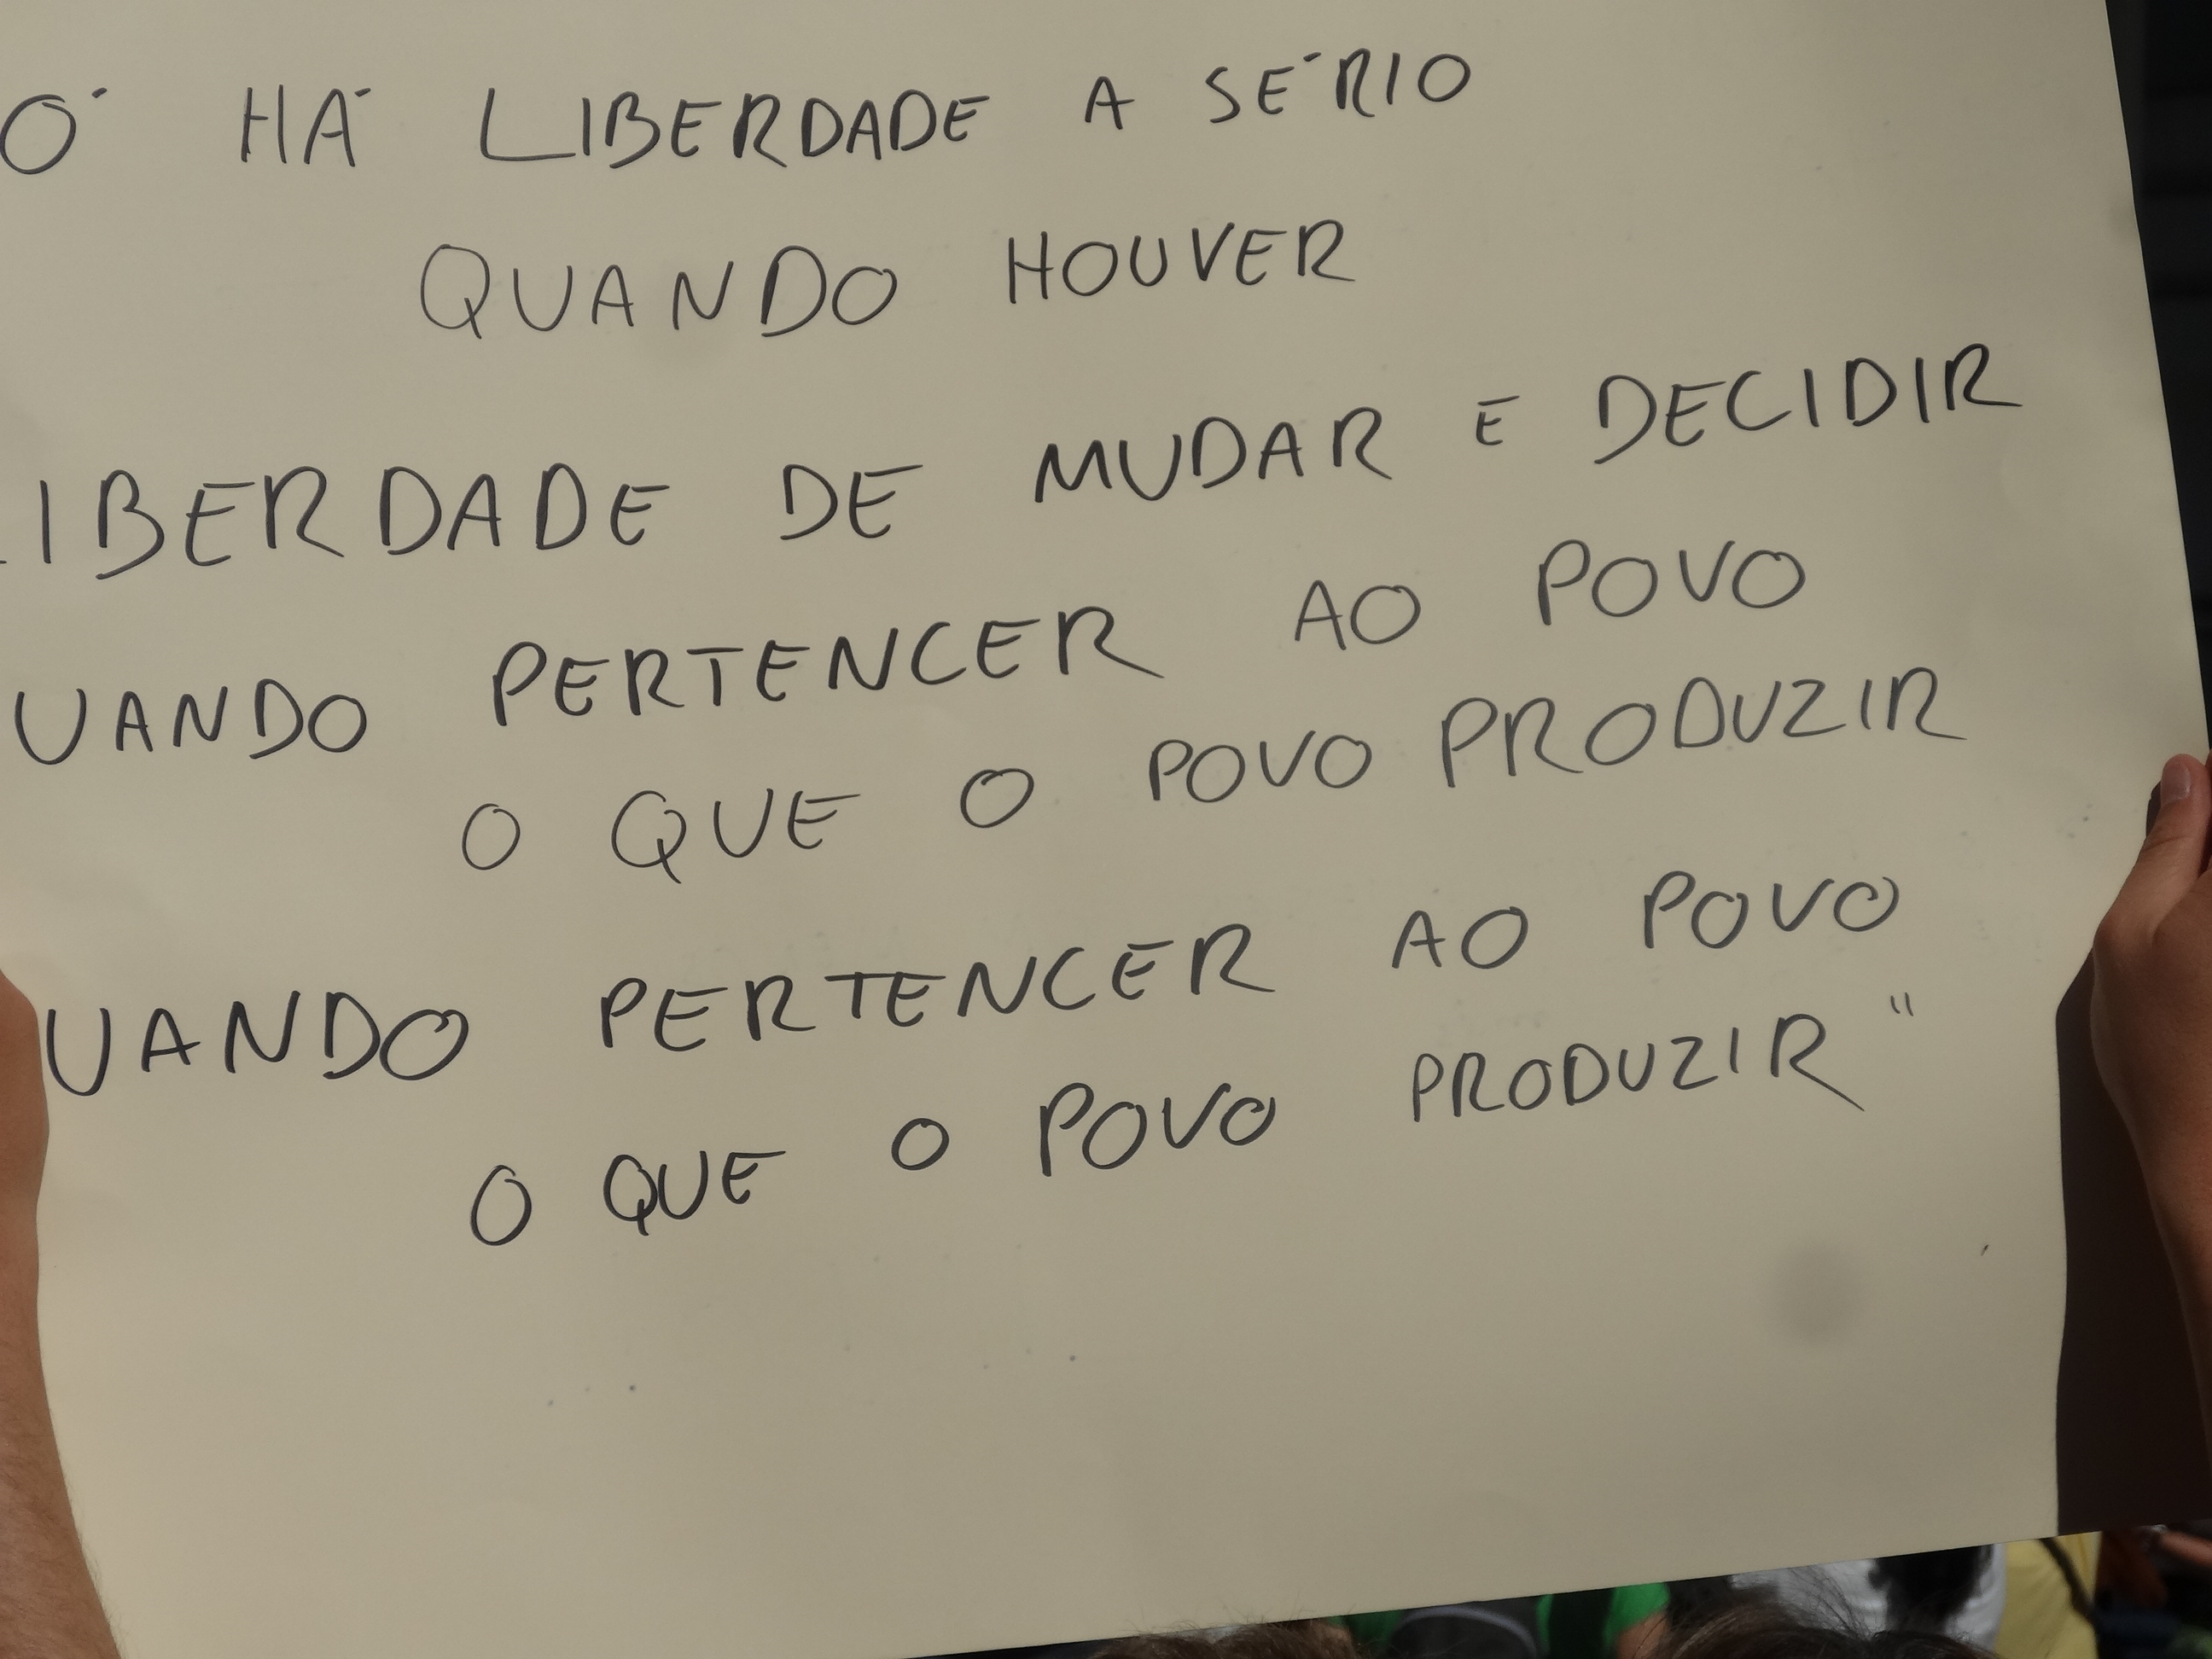 Ó HÁ LIBERDADE A SÉRIO
QUANDO HOUVER
IBERDADE DE MUDAR E DECIDIR
UANDO PERTENCER AO POVO
O QUE O POVO PRODUZIR
UANDO PERTENCER AO POVO
O QUE O POVO PRODUZIR"